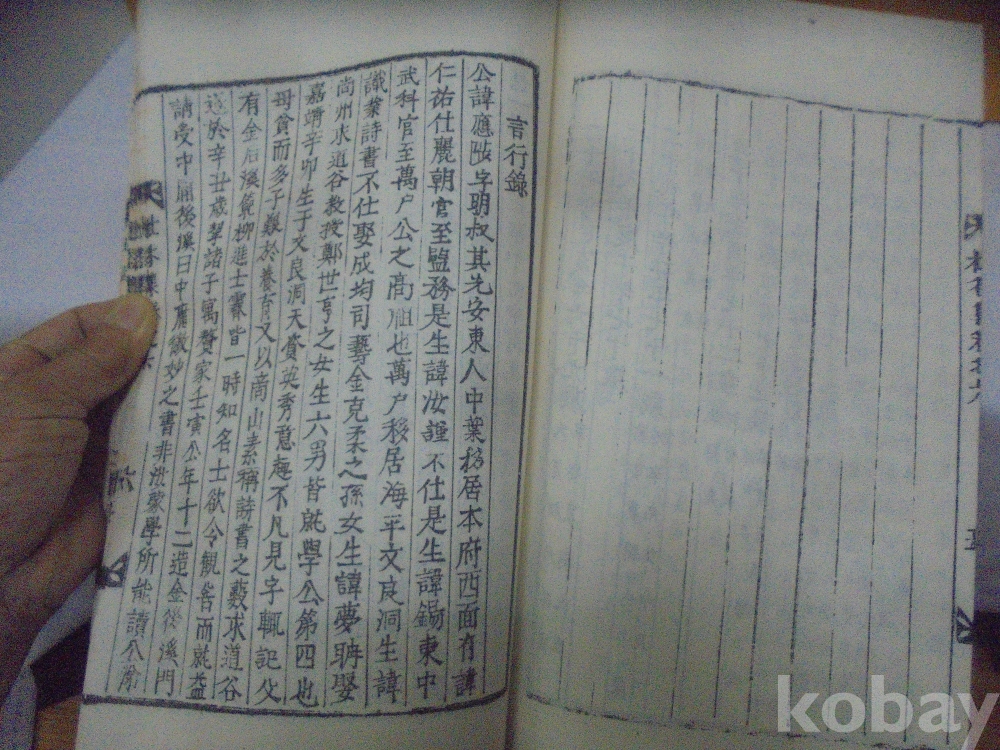 言行錄
公諱應 字明叔其先安東人中葉移居本府西面有諱
仁祐仕麗朝官至監務是生諱汝 不仕是生諱錫東中
武科官至萬户公之高祖也萬户移居海平文良洞生諱
識業詩書不仕娶成均司藝金克柔之孫女生諱夢聃娶
尚州求道谷教授鄭世亨之女生六男皆就學公第四也
嘉靖辛卯生于文良洞天資英秀意趣不凡見字輒記父
母貧而多子難於養育又以商山素稱詩書之藪求道谷
有金后溪範柳進士霖皆一時知名士欲令觀善而就益
於辛丑歲挈諸子寓贅家壬寅公年十二造金後溪門
請受中庸後溪曰中庸微妙之書非 蒙學所能讀公
kobay